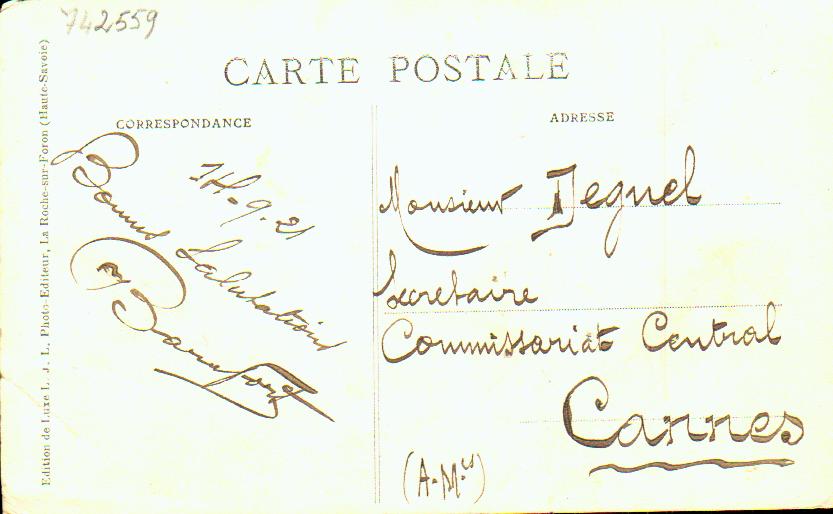 742559
CARTE POSTALE
CORRESPONDANCE
ADRESSE
14-9-21
Bonnes Salutations
Monsieur
Secretaire
Commissariat Central
Cannes
(A-Mes)
Edition de Luxe L. J. L. Photo-Editeur, La Roche-sur-Foron (Haute-Savoie)